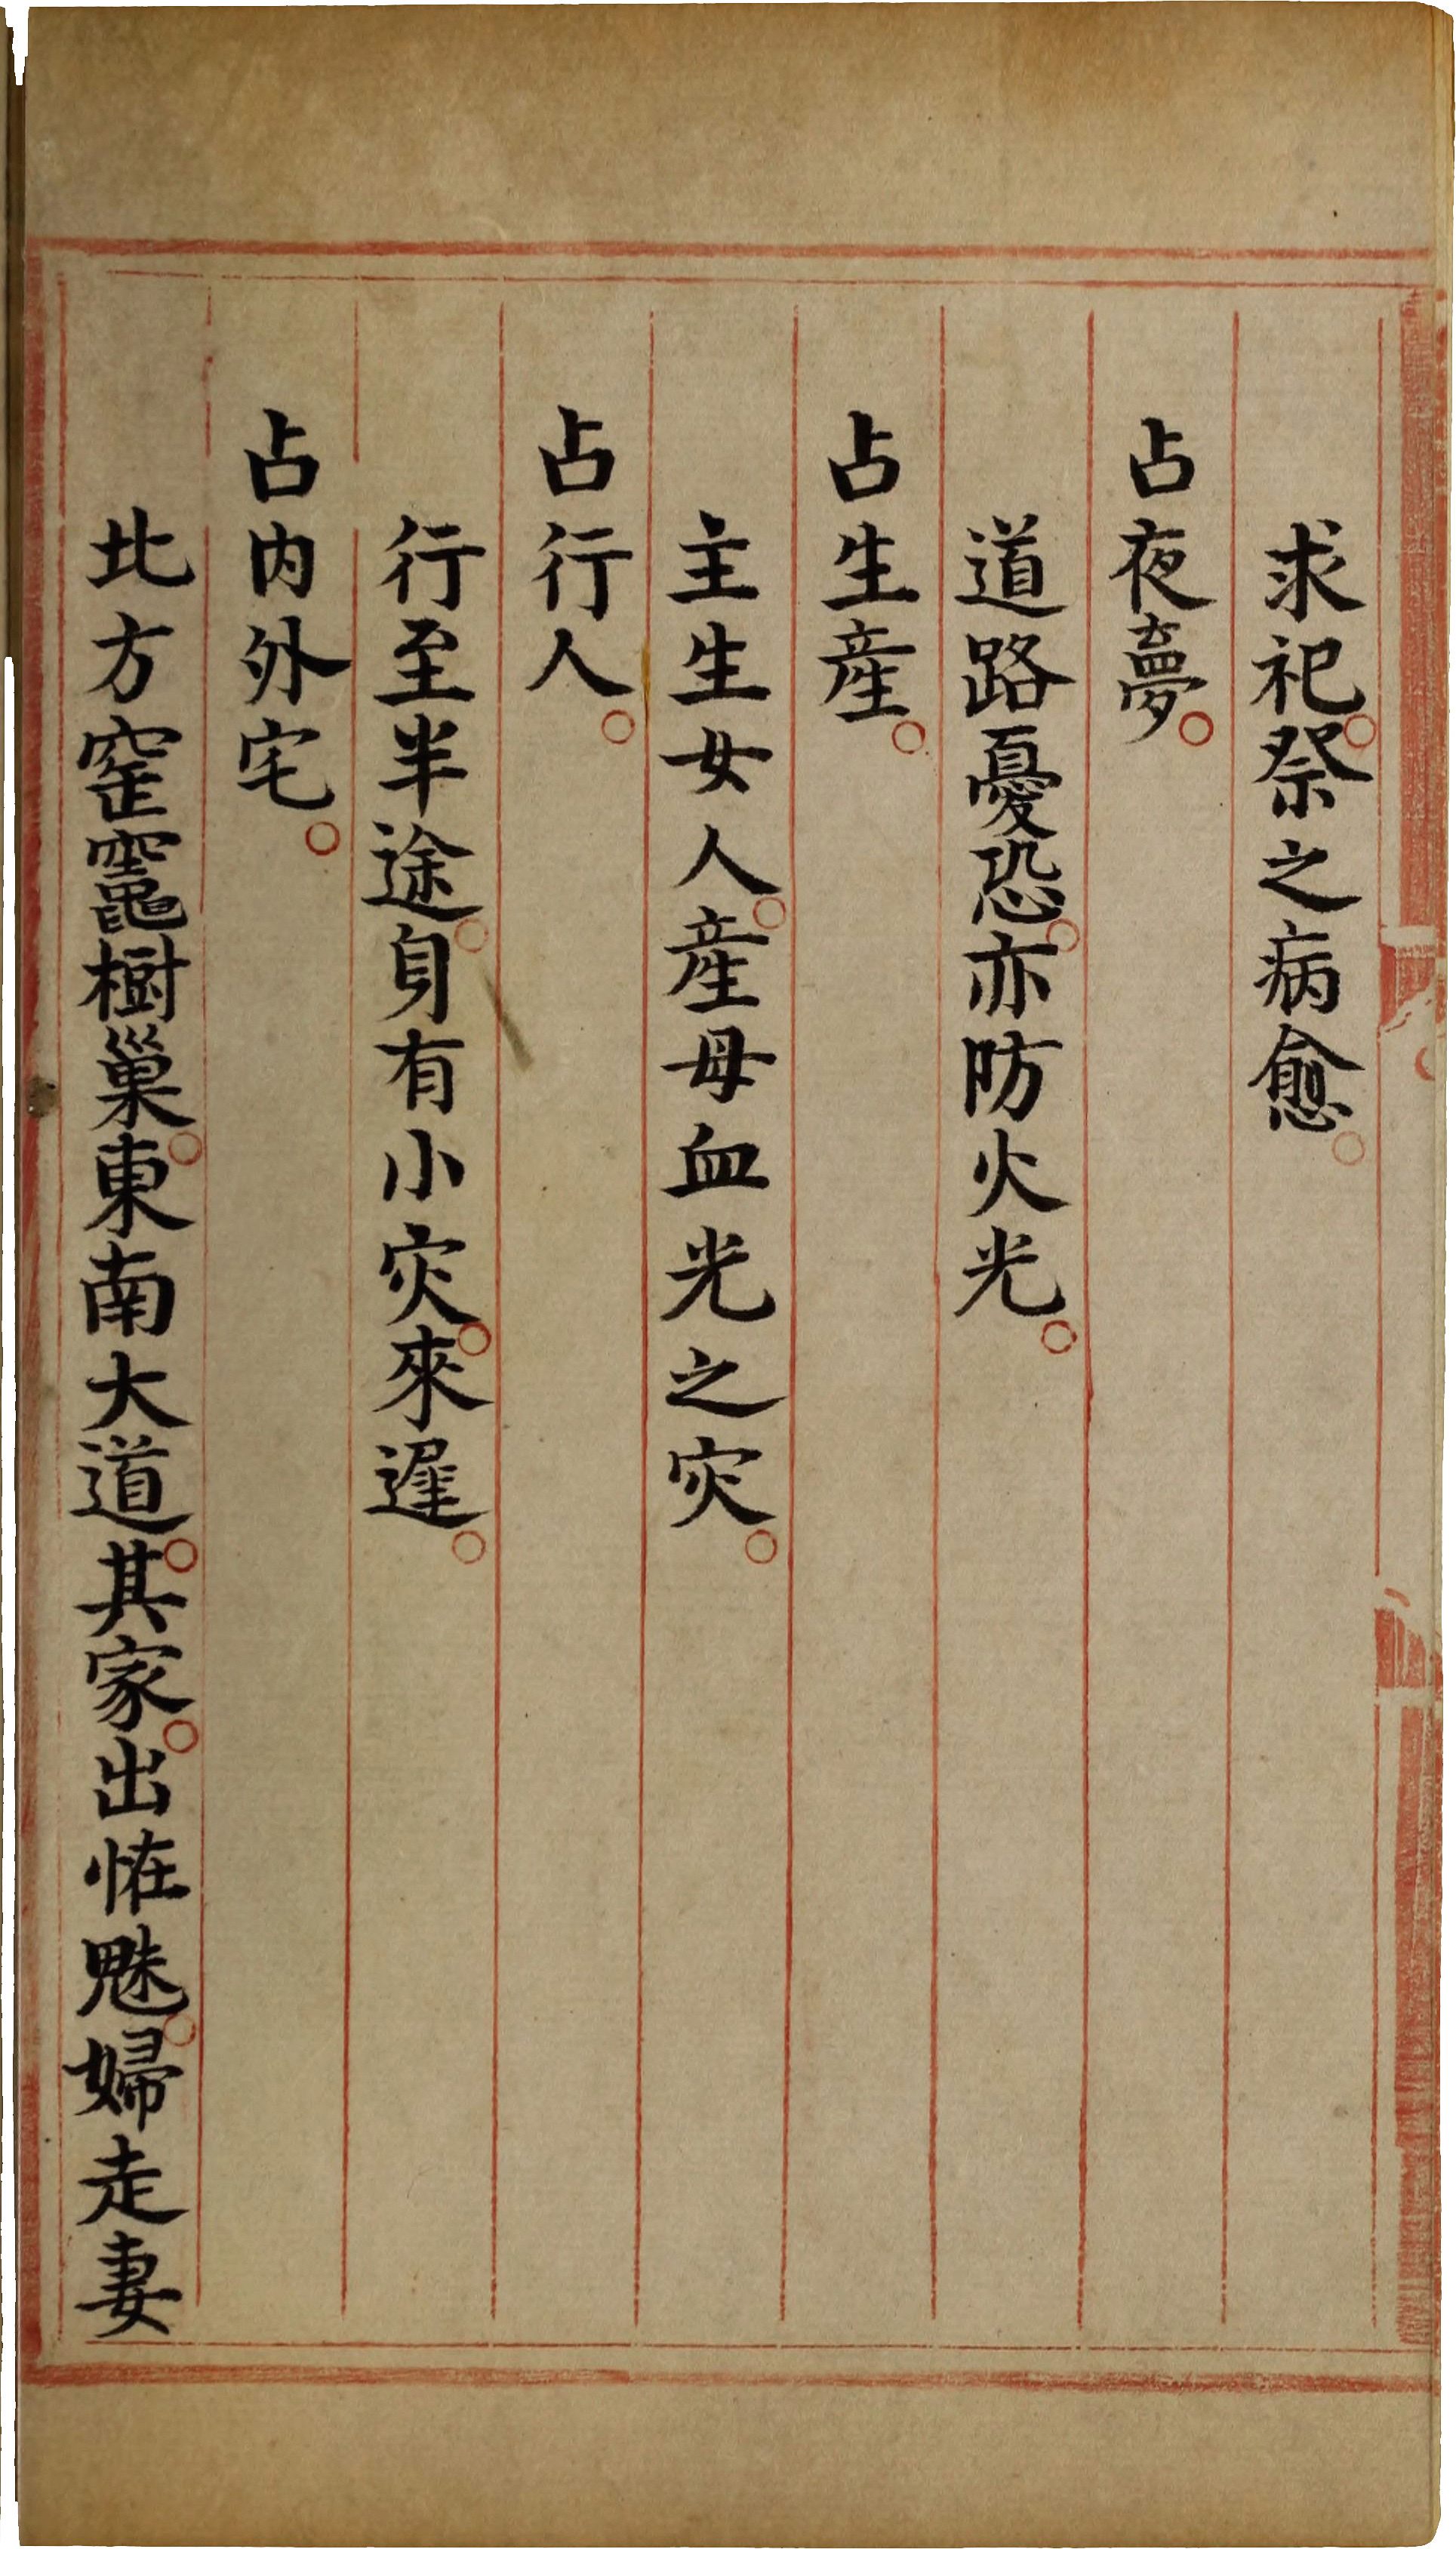 求祀。祭之病愈。
占夜夢。
道路憂恐。亦防火光。
占生産。
主生女人。産母血光之灾。
占行人。
行至半途。身有小灾。來遲。
占内外宅。
北方窰竈樹巢。東南大道。其家。出恠魅。婦走妻